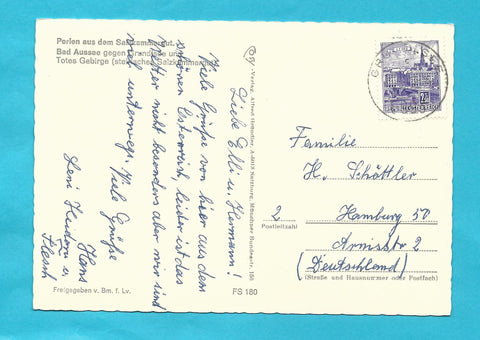 Perlen aus dem Salzkammergut.
Bad Aussee gegen Grundlsee und
Totes Gebirge (steirisches Salzkammergut)
Liebe Elli u. Hermann!
Viele Grüße von hier aus dem
schönen Österreich, leider ist das
Wetter nicht besonders aber wir sind
viel unterwegs. Viele Grüße
Hans
Leni
Freigegeben v. Bm. f. Lv.
FS 180
Familie
H. Schöttler
2
Hamburg 50
Postleitzahl
Arnisstr 2
(Deutschland)
(Straße und Hausnummer oder Postfach)